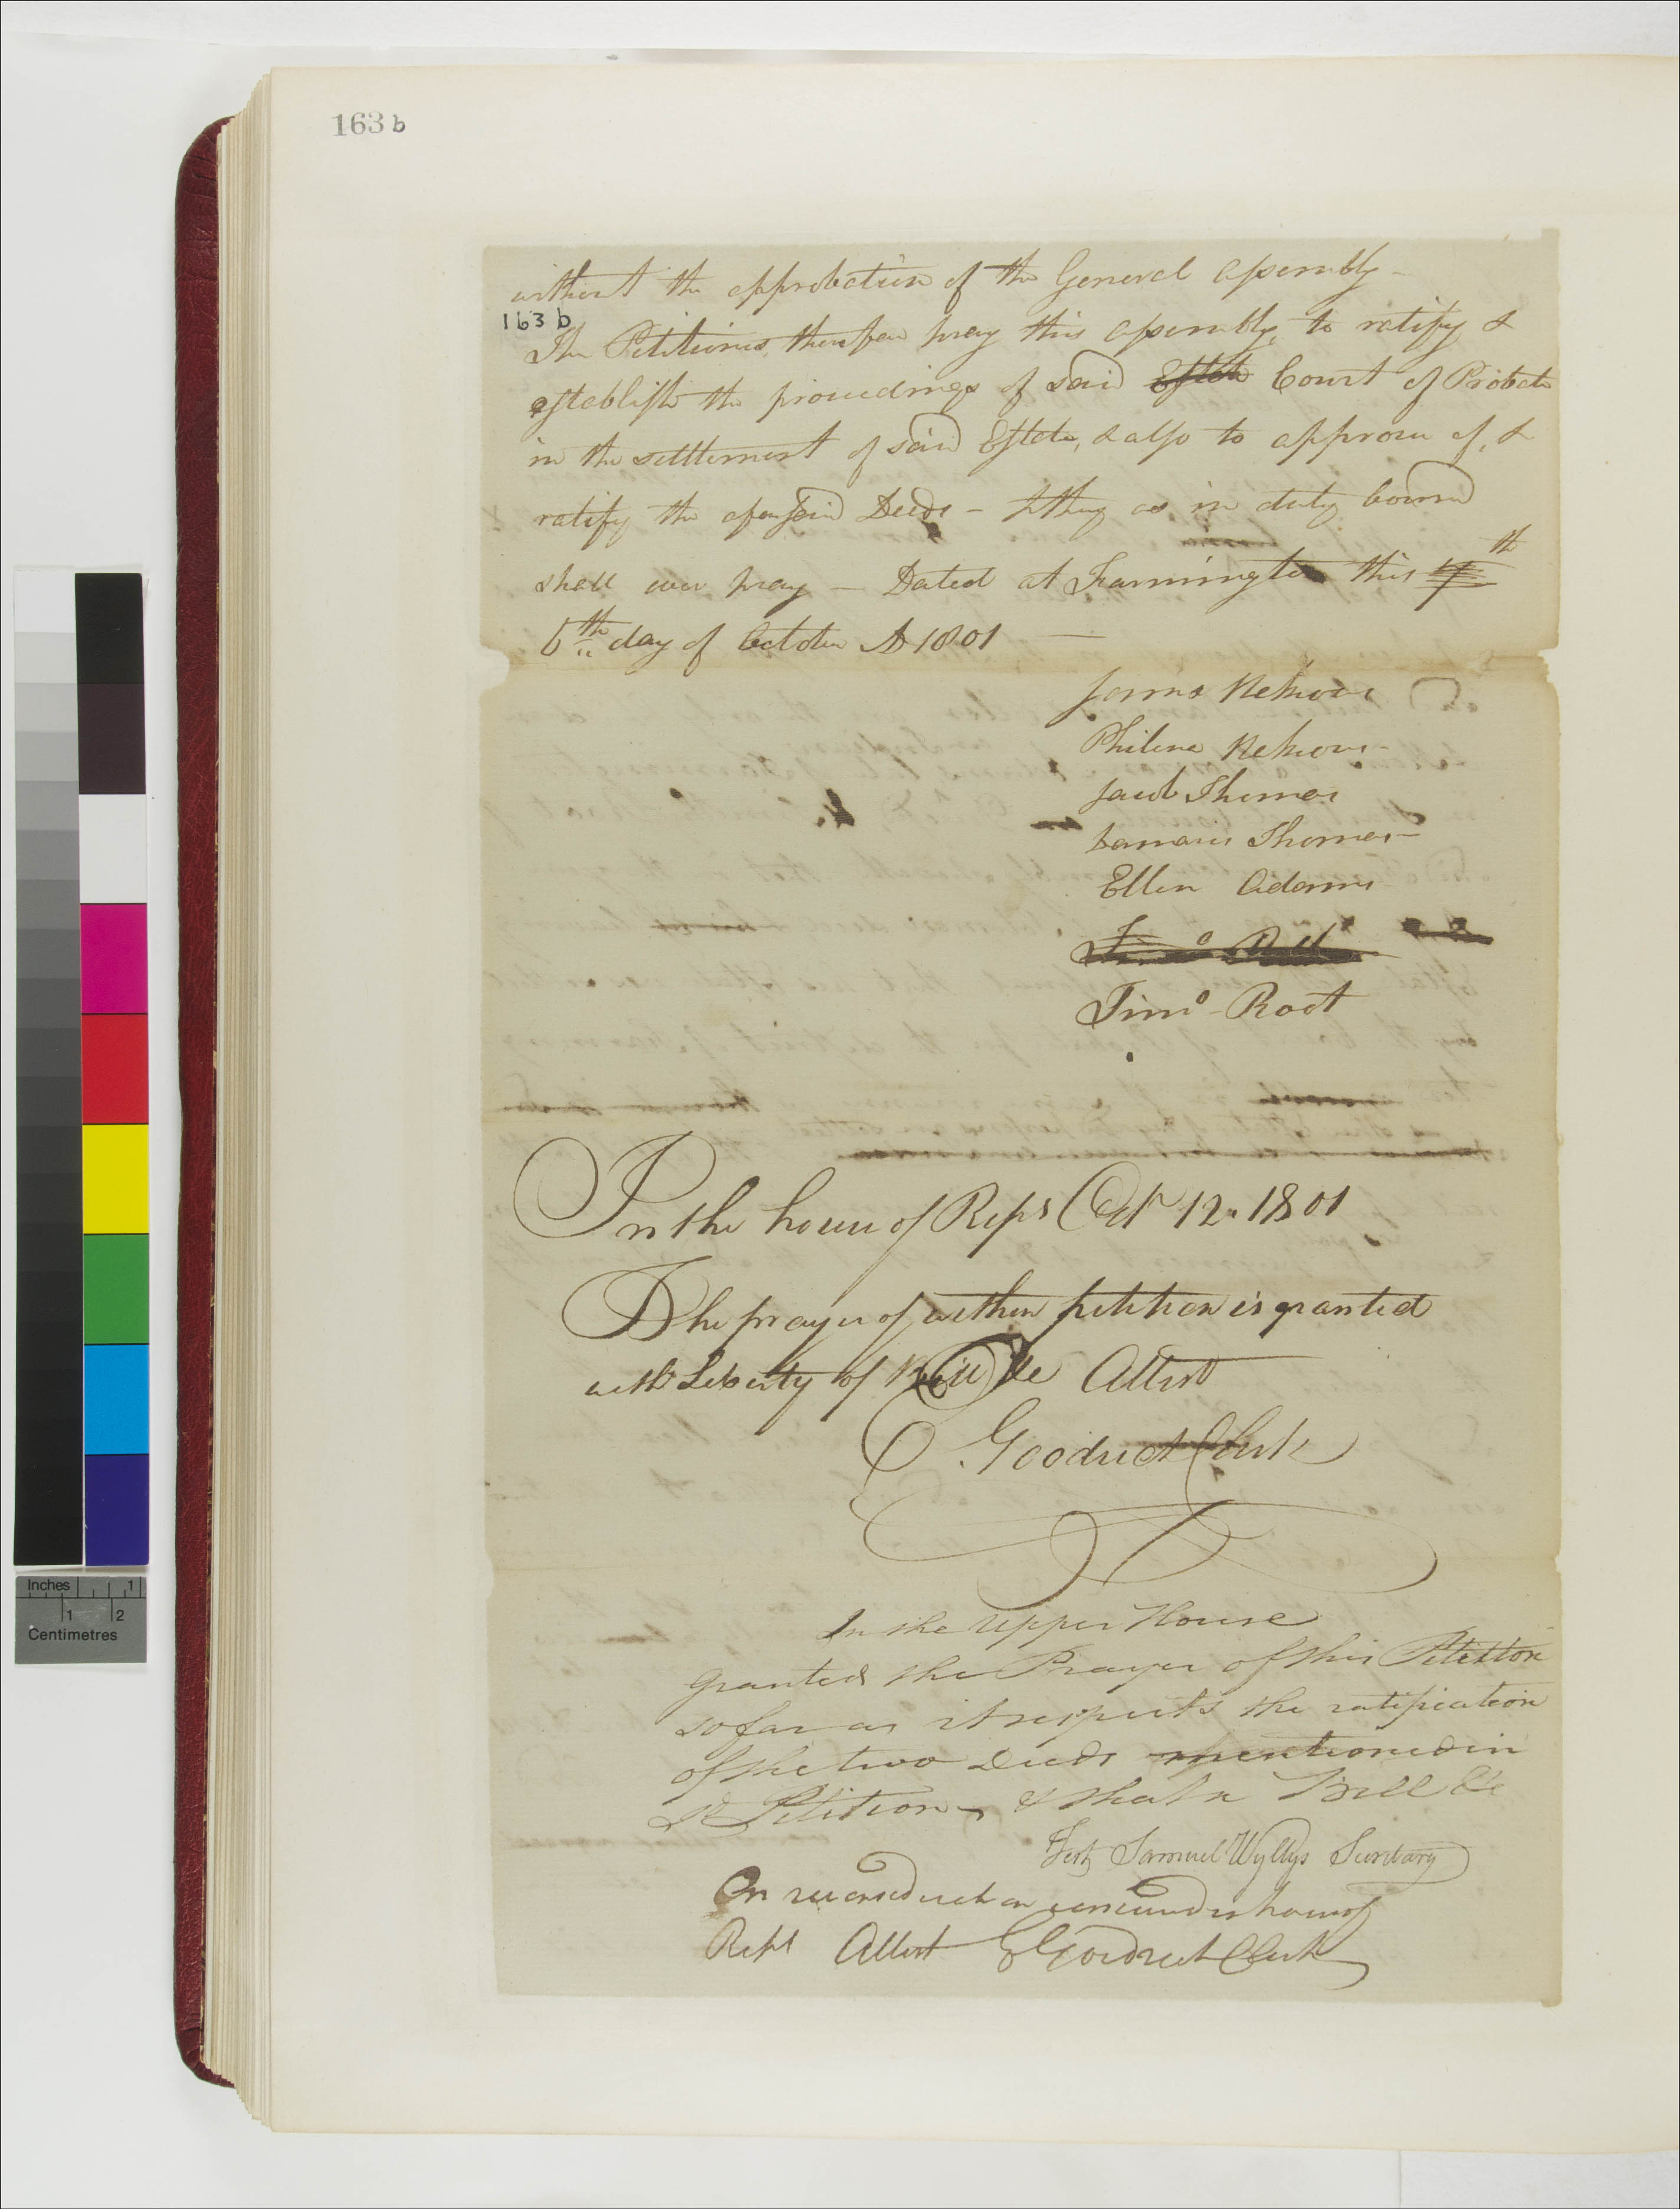 163 b
without the approbation of the General Assembly -
163 b
The Petitioners, therefore pray this Assembly, to ratify &
establish the proceedings of said Estate Court of Probate
in the settlement of said Estate, & also to approve of, &
ratify the aforesaid Deeds - & they as in duty bound
shall ever pray — Dated at Farmington this th
6th day of October AD 1801 —
James
Philena
Jacob Thomas
Damaris Thomas —
Ellen Adams
Timo Root
Timo - Root
In the house of Reps Octr 12. 1801
The prayer of within petition is granted
with Liberty of Bill &c Attest
E Goodrich Clerk
In the Upper House
granted the Prayer of this Petition
so far as it respects the ratification
of the two Deeds mentioned in
sd Petition - & that a Bill &c
Test Samuel Wyllys Secretary
On reconsideration concurred in house of
Reps Attest E Goodrich Clerk
Inches 1
1 2
Centimetres